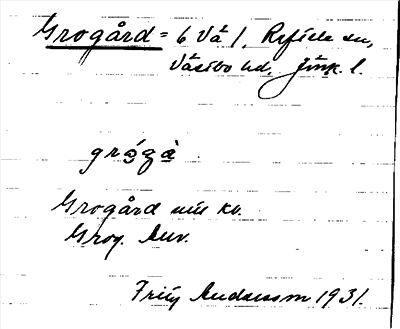 Grogård = 6 Vä 1. Reftele sn,
Västbo hd. Jönk. l.
Grogård mtl kv.
Grog. Anv.
Fritz Andersson 1931.